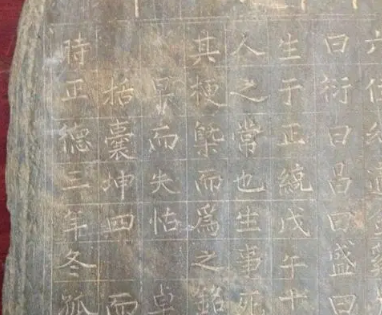 六
曰衍曰昌曰盛曰
生于正統戊午十
人之常也生事死
其梗槩而爲之銘
早而失怙 卓
括囊坤四 而
時正德二年冬孤